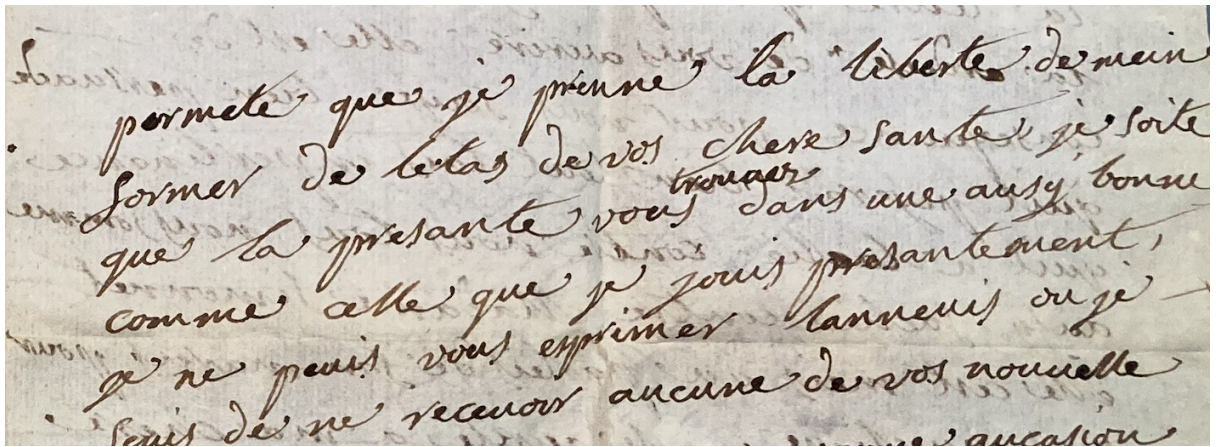 permete que je prenne la liberte de mein
former de letas de vos chere sante, je soite
que la presante vous trouver dans une ausy bonne
comme celle que je jouis presantement,
je ne peuis vous exprimer lanneuis ou je
suis de ne recevoir aucune de vos nouvelle
aucasion